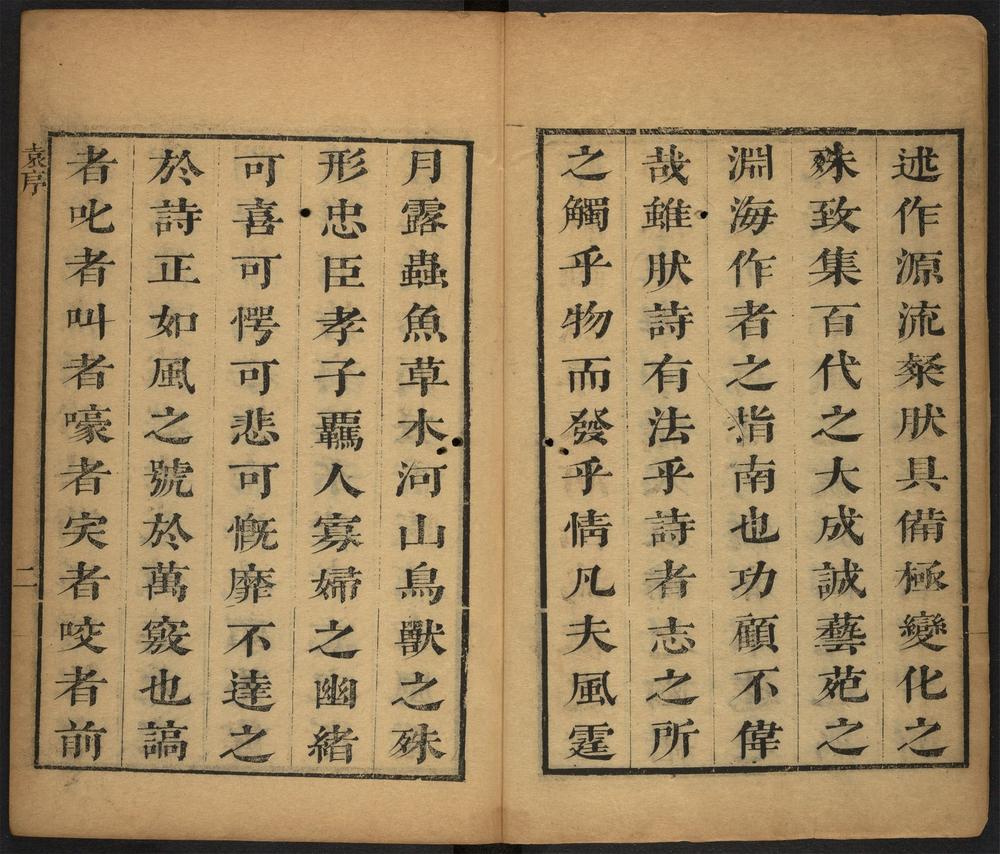 述作源流粲肰具備極變化之
殊致集百代之大成誠藝苑之
淵海作者之指南也功顧不偉
哉雖肰詩有法乎詩者志之所
之觸乎物而發乎情凡夫風霆
月露蟲魚草木河山鳥獸之殊
形忠臣孝子羈人寡婦之幽緒
可喜可愕可悲可慨靡不達之
於詩正如風之號於萬竅也謞
者叱者叫者嚎者宎者咬者前
袁序
二